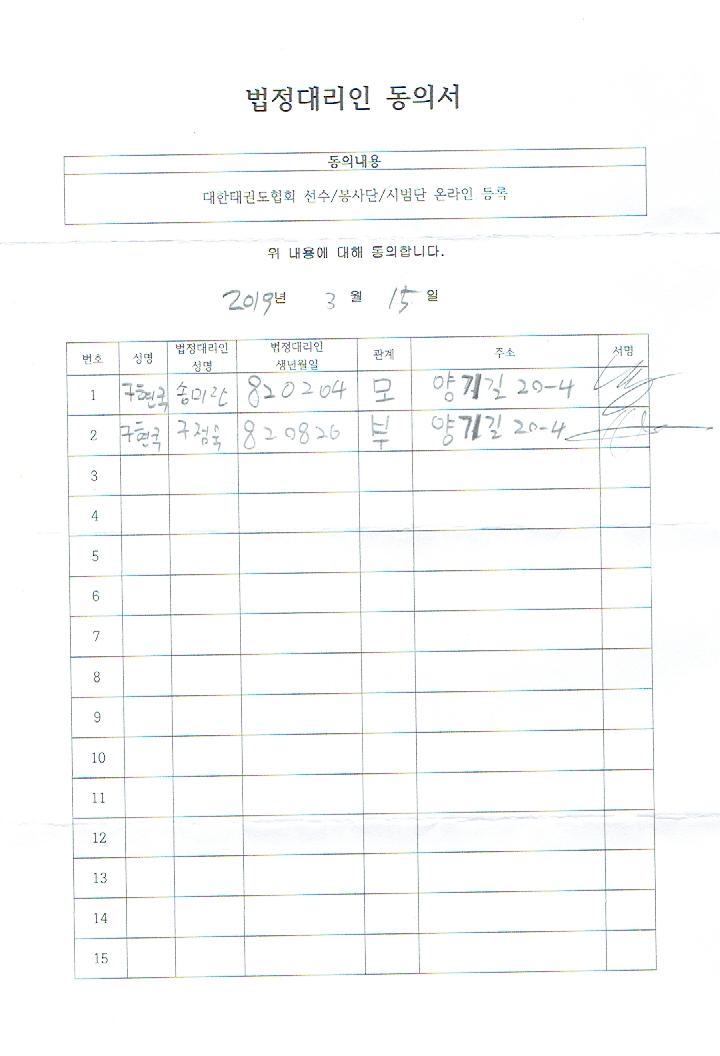 법정대리인 동의서
동의내용
대한태권도협회 선수/봉사단/시범단 온라인 등록
위 내용에 대해 동의합니다.
2019년 3 월 15 일
번호 성명 법정대리인 성명 법정대리인 생년월일 관계 주소 서명
1 구현국 송미란 820204 모 양기길 20-4
2 구현국 구점욱 820826 부 양기길 20-4
3
4
5
6
7
8
9
10
11
12
13
14
15